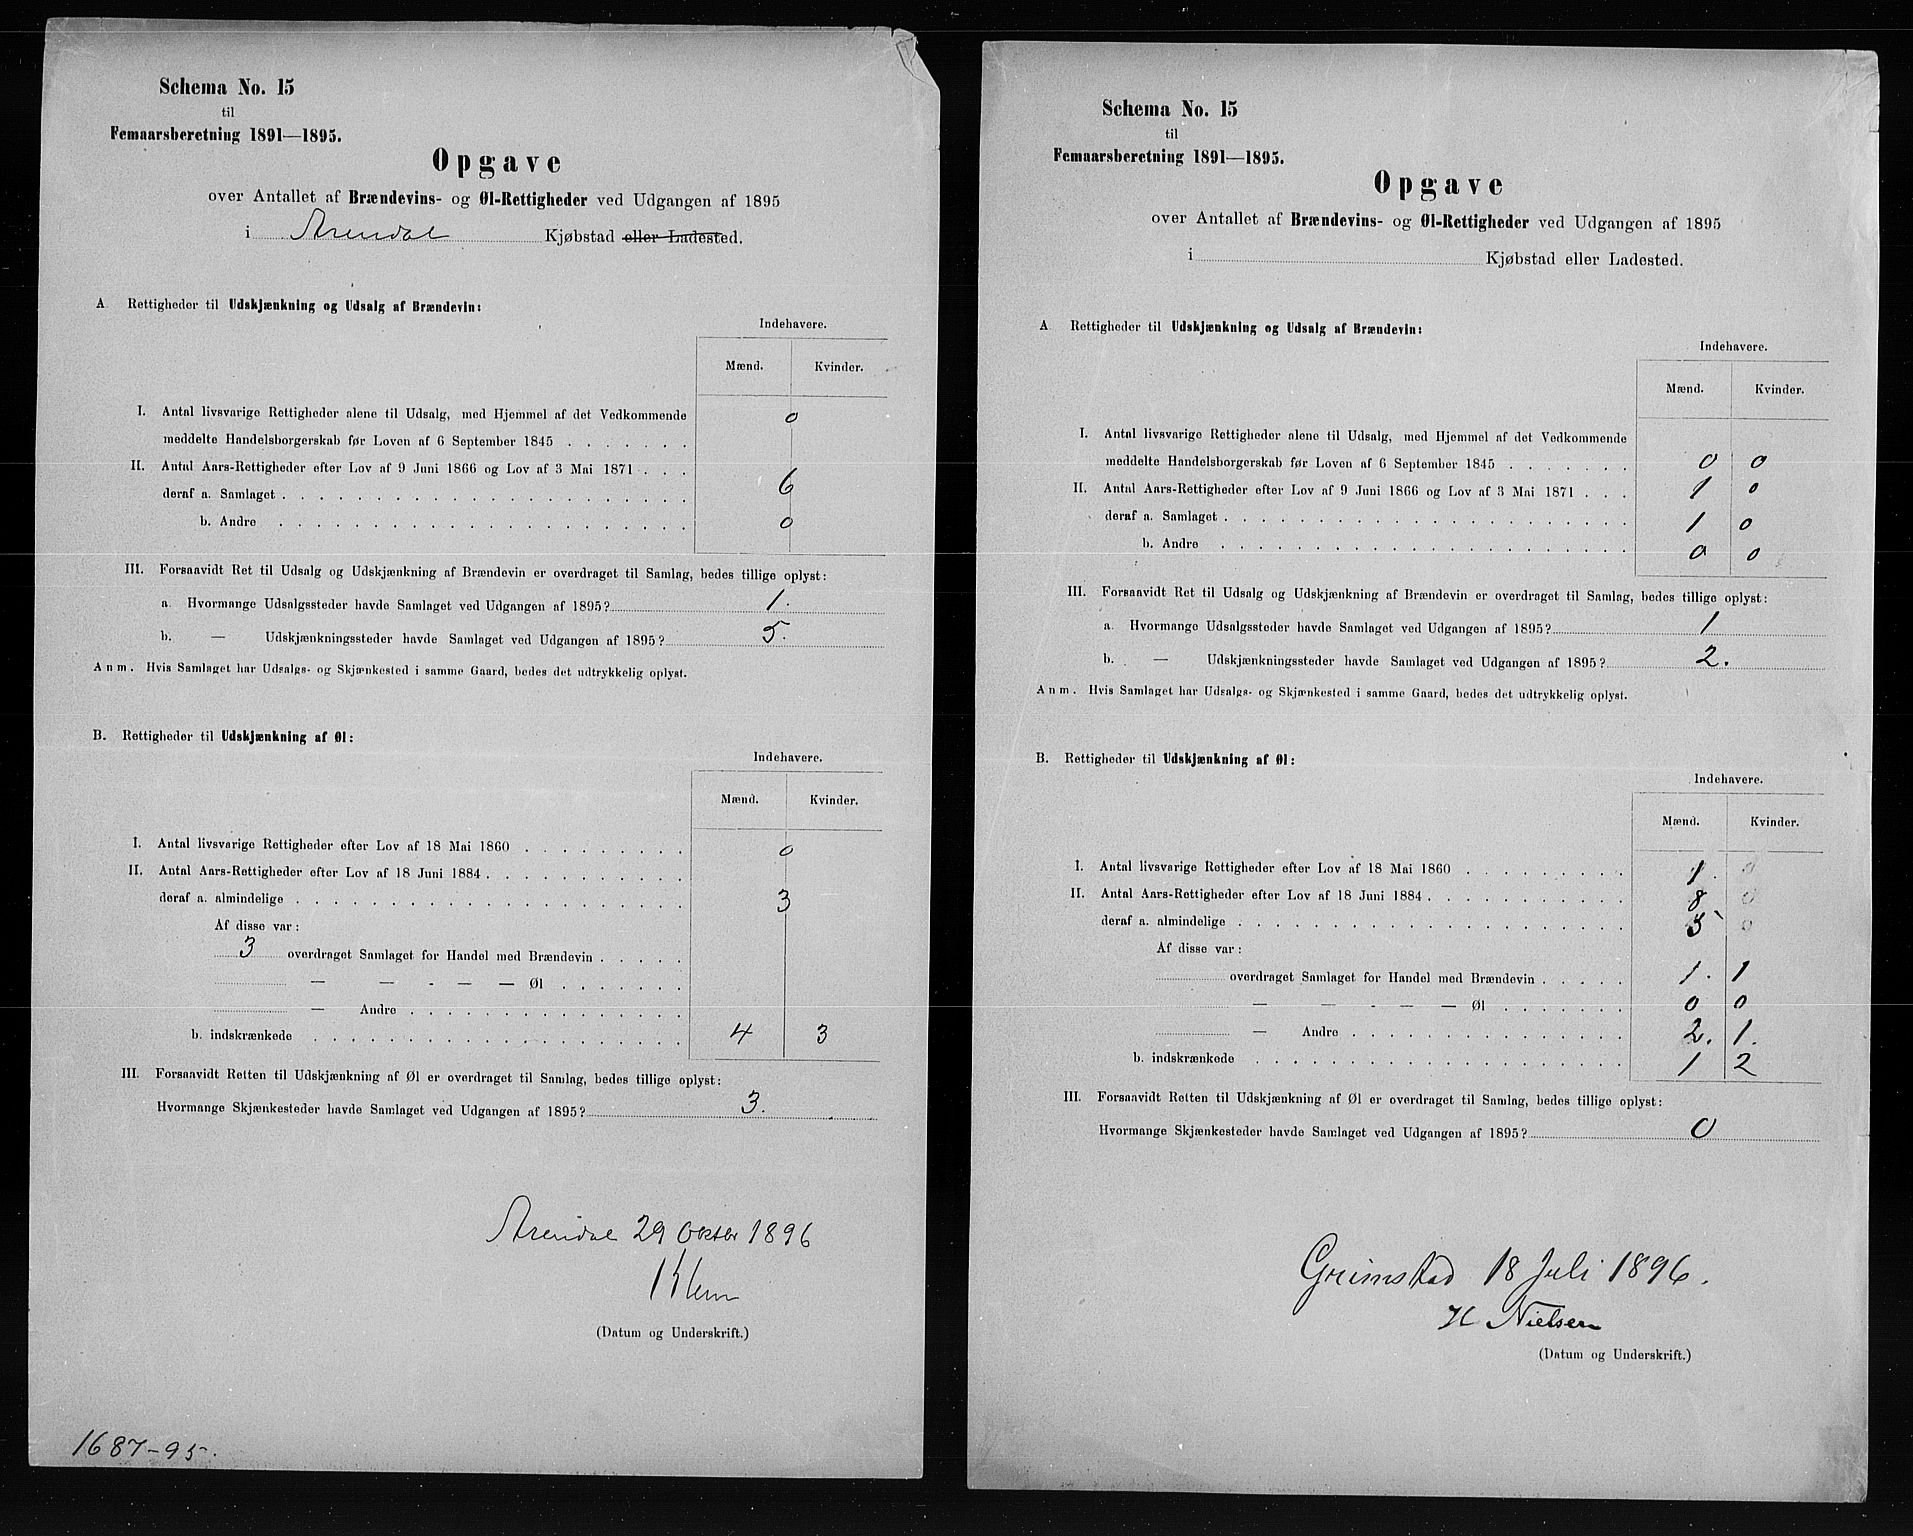 Schema No. 15
til
Femaarsberetning 1891—1895.
Opgave
over Antallet af Brændevins- og Øl-Rettigheder ved Udgangen af 1895
i Arendal Kjøbstad eller Ladested.
A Rettigheder til Udskjænkning og Udsalg af Brændevin:
Indehavere.
Mænd. Kvinder.
I. Antal livsvarige Rettigheder alene til Udsalg, med Hjemmel af det Vedkommende 0
meddelte Handelsborgerskab før Loven af 6 September 1845
II. Antal Aars-Rettigheder efter Lov af 9 Juni 1866 og Lov af 3 Mai 1871
deraf a. Samlaget 6
b. Andre 0
III. Forsaavidt Ret til Udsalg og Udskjænkning af Brændevin er overdraget til Samlag, bedes tillige oplyst:
a. Hvormange Udsalgssteder havde Samlaget ved Udgangen af 1895? 1.
b. — Udskjænkningssteder havde Samlaget ved Udgangen af 1895? 5.
Anm. Hvis Samlaget har Udsalgs- og Skjænkested i samme Gaard, bedes det udtrykkelig oplyst.
B. Rettigheder til Udskjænkning af Øl:
Indehavere.
Mænd. Kvinder.
I. Antal livsvarige Rettigheder efter Lov af 18 Mai 1860 0
II. Antal Aars-Rettigheder efter Lov af 18 Juni 1884
deraf a. almindelige 3
Af disse var:
3 overdraget Samlaget for Handel med Brændevin
— — - — — Øl
— Andre
b. indskrænkede 4 3
III. Forsaavidt Retten til Udskjænkning af Øl er overdraget til Samlag, bedes tillige oplyst:
Hvormange Skjænkesteder havde Samlaget ved Udgangen af 1895? 3.
Arendal 29 Oktbr 1896
(Datum og Underskrift.)
1687-95.
Schema No. 15
til
Femaarsberetning 1891—1895.
Opgave
over Antallet af Brændevins- og Øl-Rettigheder ved Udgangen af 1895
i Kjøbstad eller Ladested.
A Rettigheder til Udskjænkning og Udsalg af Brændevin:
Indehavere.
Mænd. Kvinder.
I. Antal livsvarige Rettigheder alene til Udsalg, med Hjemmel af det Vedkommende
meddelte Handelsborgerskab før Loven af 6 September 1845 0 0
II. Antal Aars-Rettigheder efter Lov af 9 Juni 1866 og Lov af 3 Mai 1871 1 0
deraf a. Samlaget 1 0
b. Andre 0 0
III. Forsaavidt Ret til Udsalg og Udskjænkning af Brændevin er overdraget til Samlag, bedes tillige oplyst:
a. Hvormange Udsalgssteder havde Samlaget ved Udgangen af 1895? 1
b. — Udskjænkningssteder havde Samlaget ved Udgangen af 1895? 2.
Anm. Hvis Samlaget har Udsalgs- og Skjænkested i samme Gaard, bedes det udtrykkelig oplyst.
B. Rettigheder til Udskjænkning af Øl:
Indehavere.
Mænd. Kvinder.
I. Antal livsvarige Rettigheder efter Lov af 18 Mai 1860 1. 0
II. Antal Aars-Rettigheder efter Lov af 18 Juni 1884 8 0
deraf a. almindelige 5 0
Af disse var:
overdraget Samlaget for Handel med Brændevin 1. 1
— — - — — Øl 0 0
— Andre 2. 1.
b. indskrænkede 1 2
III. Forsaavidt Retten til Udskjænkning af Øl er overdraget til Samlag, bedes tillige oplyst:
Hvormange Skjænkesteder havde Samlaget ved Udgangen af 1895? 0
Grimstad 18 Juli 1896.
H Nielsen
(Datum og Underskrift.)